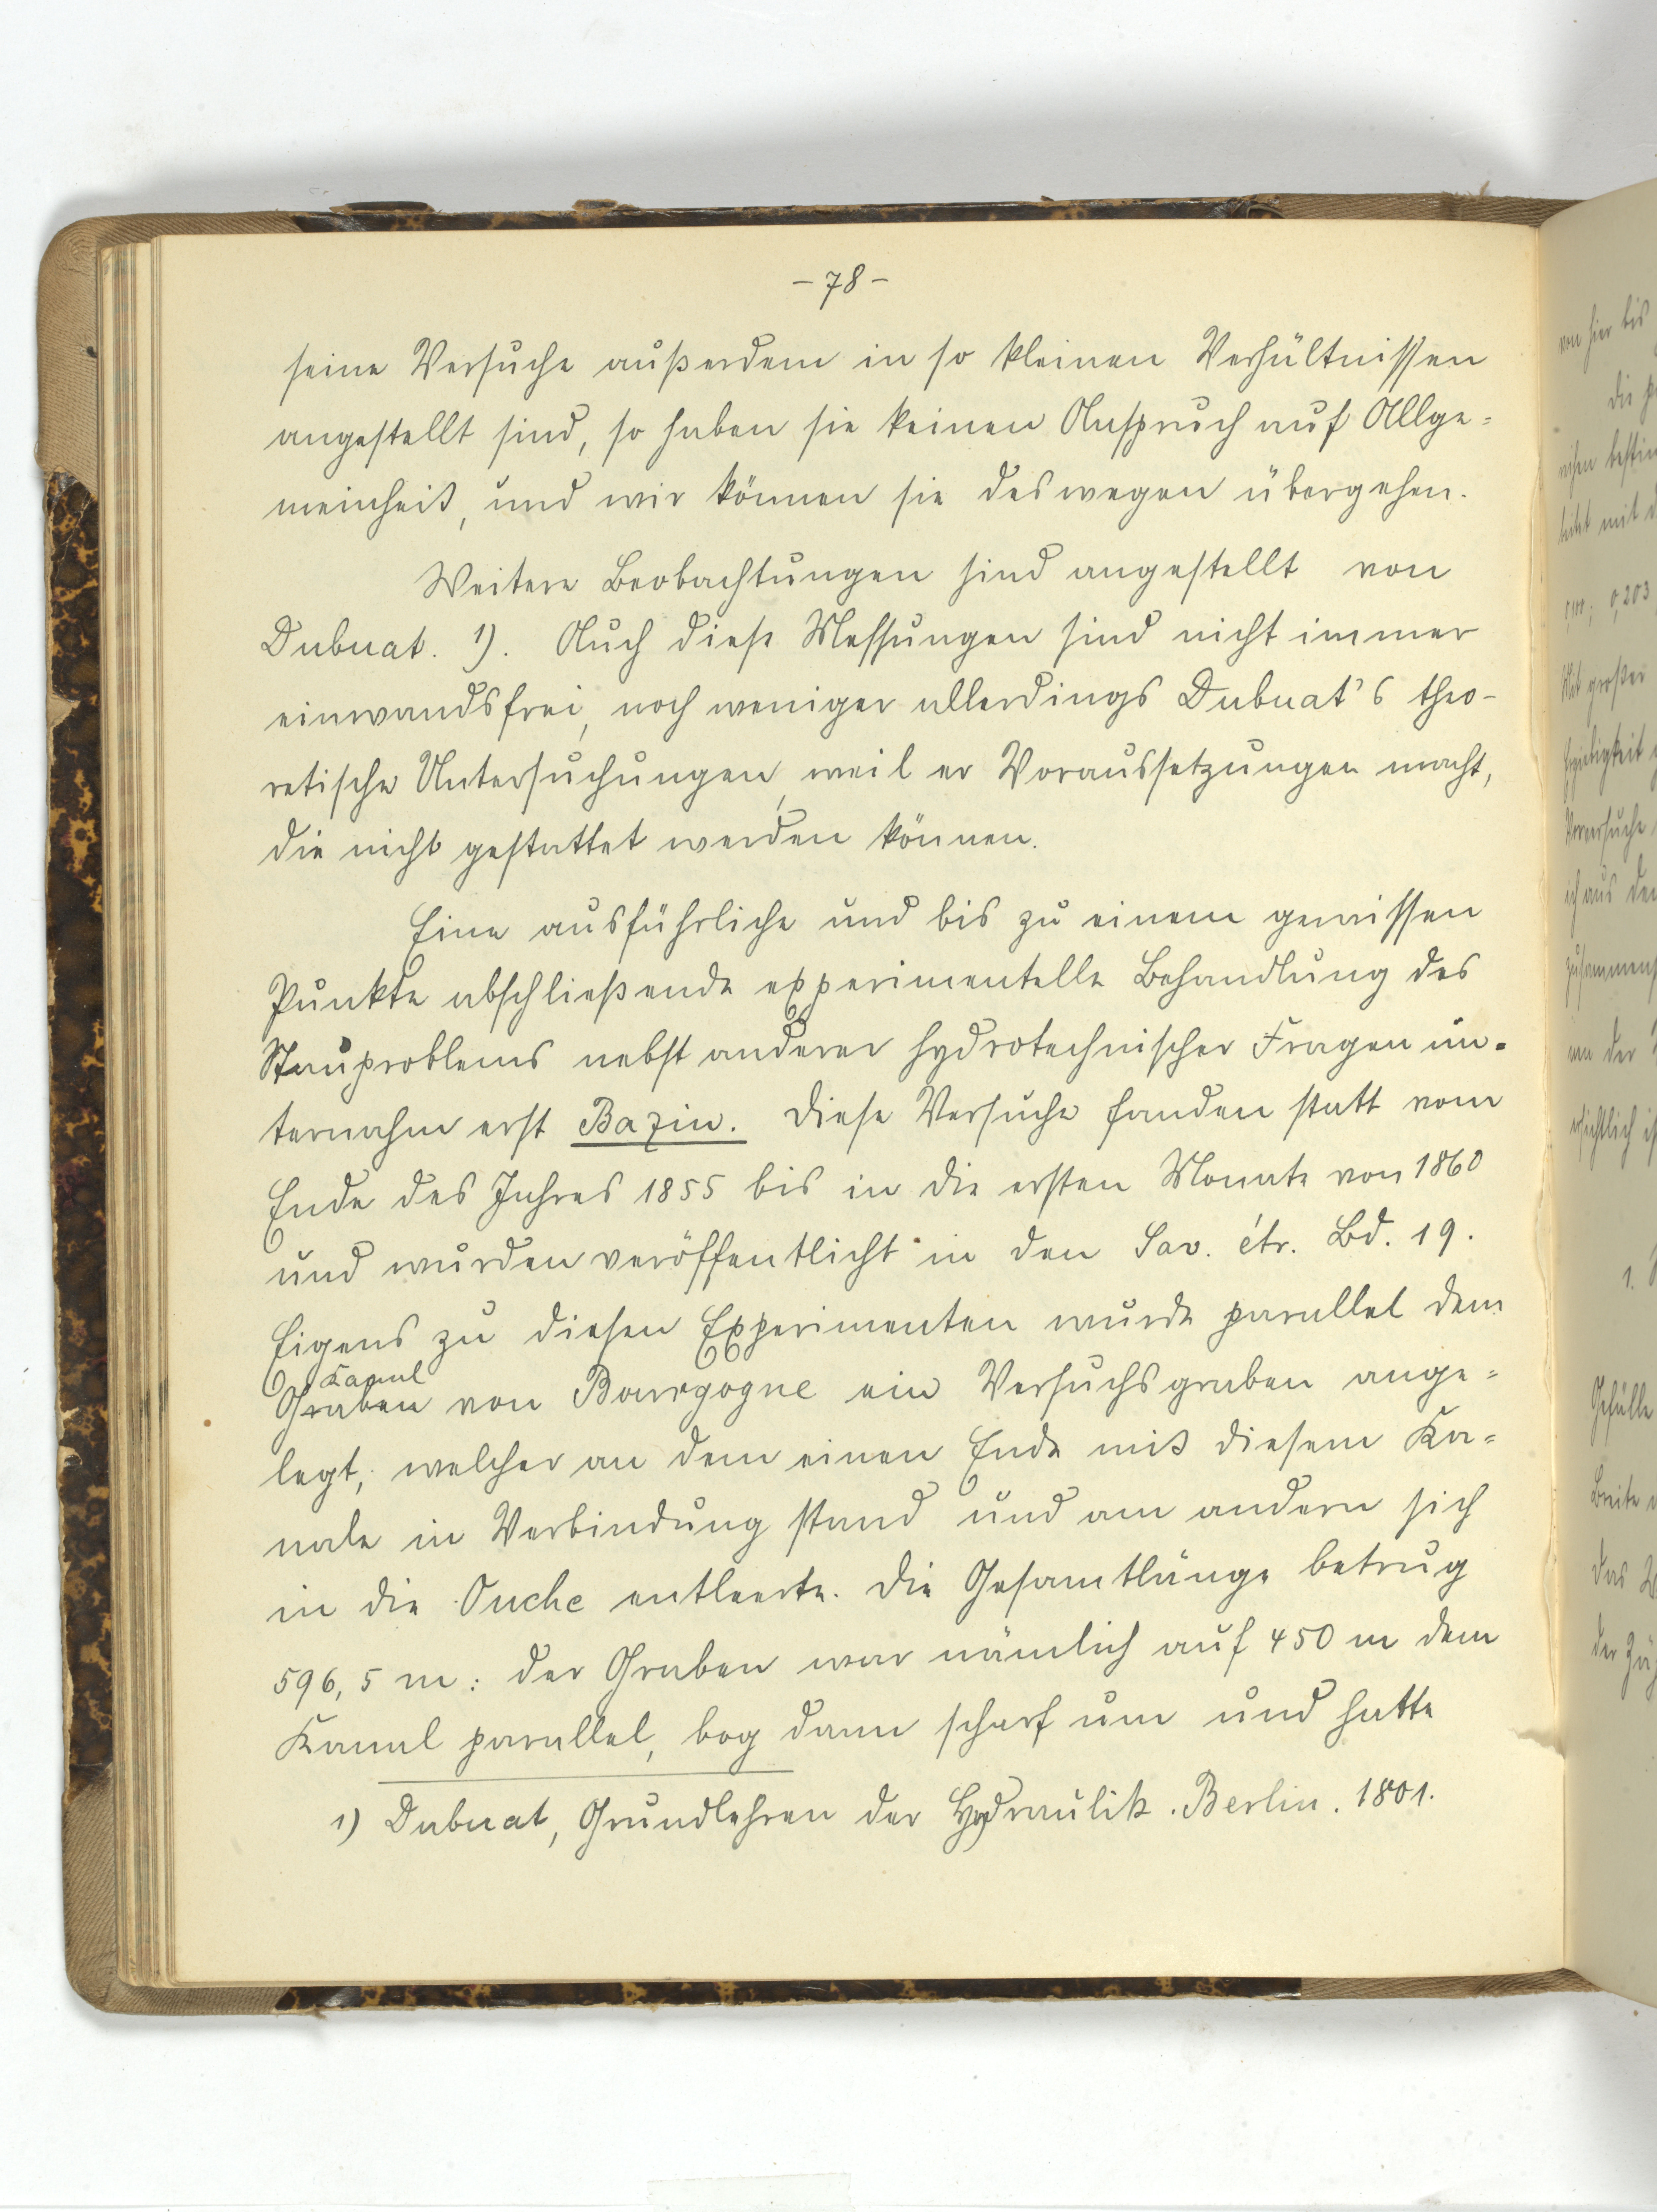 – 78 –
seine Versuche außerdem in so kleinen Verhältnissen
angestellt sind, so haben sie keinen Anspruch auf Allge=
meinheit, und wir können sie deswegen übergehen.
Weitere Beobachtungen sind angestellt von
Dubuat. 1). Auch diese Messungen sind nicht immer
einwandsfrei, noch weniger allerdings Dubuat's theo-
retische Untersuchungen, weil er Voraussetzungen macht,
die nicht gestattet werden können.
Eine ausführliche und bis zu einem gewissen
Punkte abschließende experimentelle Behandlung des
Stauproblems nebst anderer hydrotechnischer Fragen un=
ternahm erst Bazin. Diese Versuche fanden statt vom
Ende des Jahres 1855 bis in die ersten Monate von 1860
und wurden veröffentlicht in den Sav. étr. Bd. 19.
Eigens zu diesen Experimenten wurde parallel dem
Kanal
Graben von Bourgogne ein Versuchsgraben ange=
legt, welcher an dem einen Ende mit diesem Ka=
nale in Verbindung stand und am andern sich
in die Ouche entleerte. Die Gesamtlänge betrug
596,5 m: der Graben war nämlich auf 450 m dem
Kanal parallel, bog dann scharf um und hatte
1) Dubuat, Grundlehren der Hydraulik. Berlin. 1801.
von hier bis
die
mit
0,203
Mit großer
ich aus den